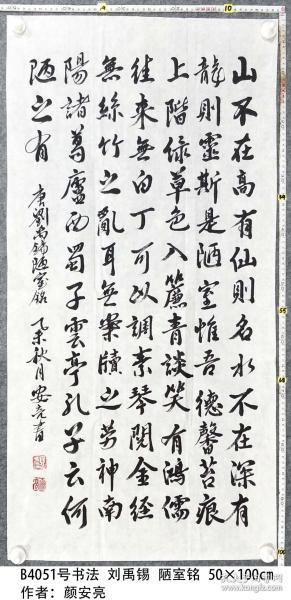 山不在高有仙則名水不在深有
龍則靈斯是陋室惟吾德馨苔痕
上階綠草色入簾青談笑有鴻儒
往來無白丁可以調素琴閱金經
無絲竹之亂耳無案牘之勞神南
陽諸葛廬西蜀子雲亭孔子云何
陋之有
唐劉禹錫陋室銘 乙未秋月安亮書
B4051号书法 刘禹锡 陋室铭 50×100cm
作者：颜安亮